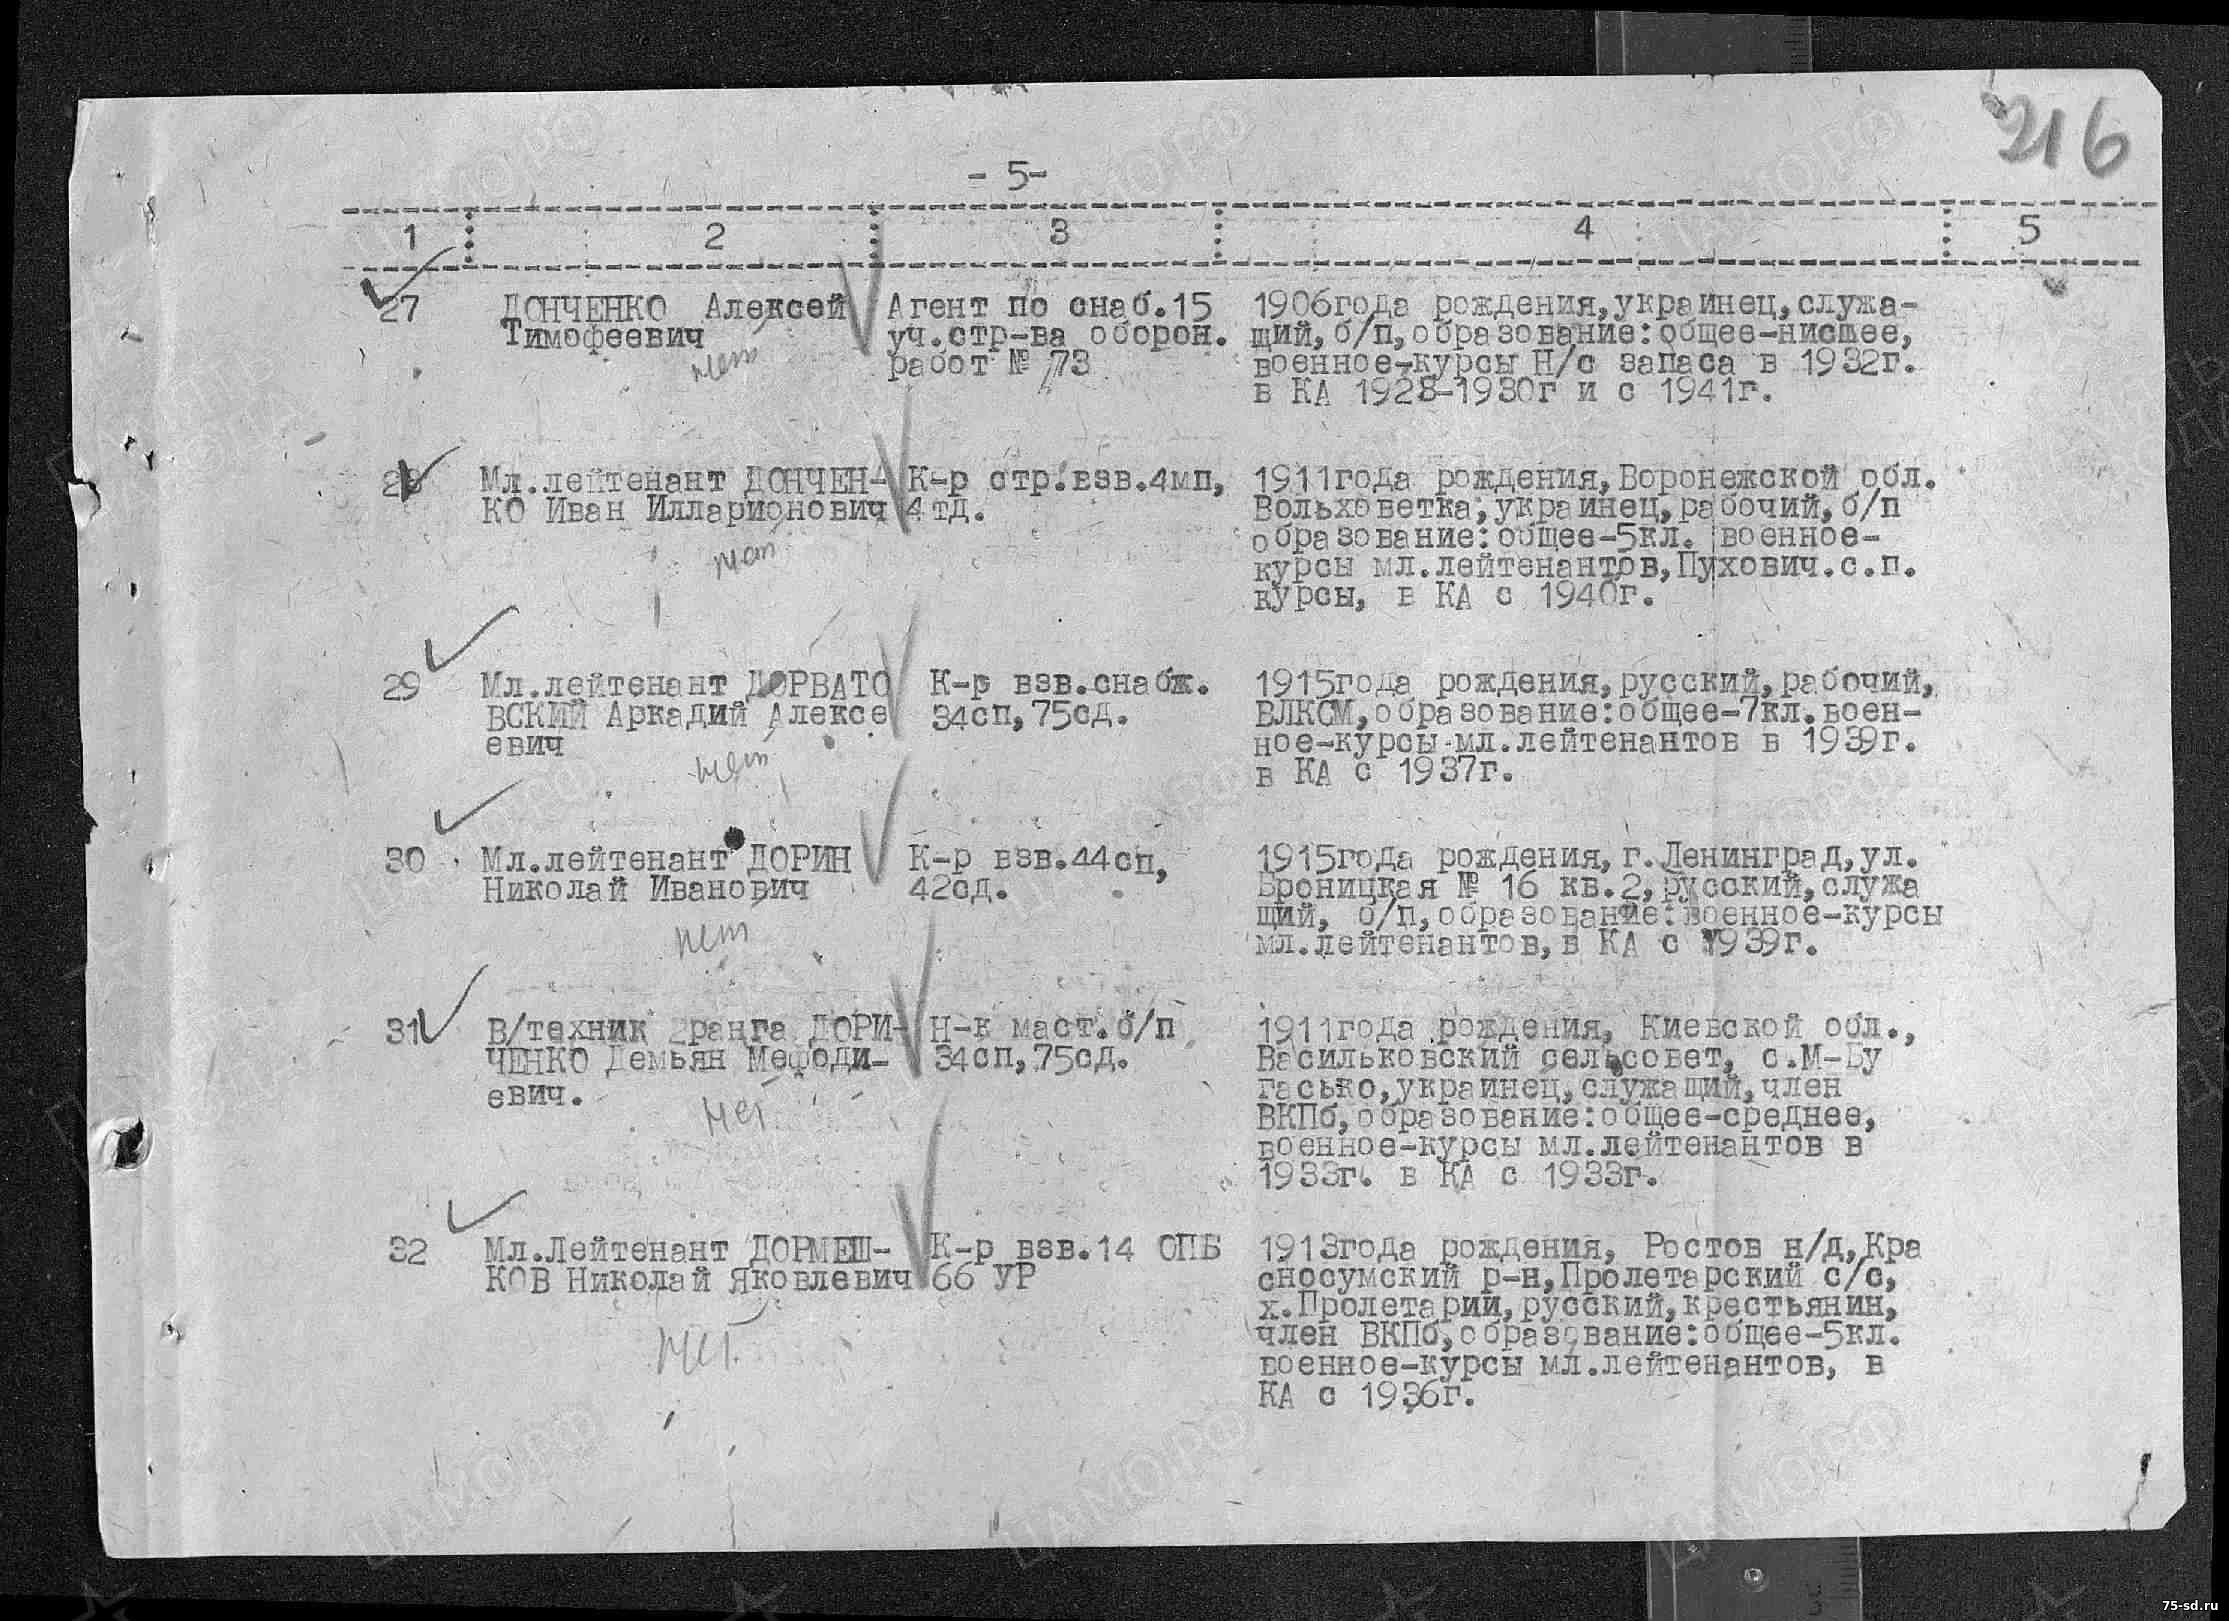 216
- 5-
1 2 3 4 5
27 ДОНЧЕНКО Алексей Агент по снаб.15 1906года рождения,украинец,служа-
Тимофеевич уч.стр-ва оборон. щий,б/п,образование:общее-нисшее,
нет работ № 73 военное-курсы Н/с запаса в 1932г.
в КА 1928-1930г и с 1941г.
28 Мл.лейтенант ДОНЧЕН- К-р стр.взв.4мп, 1911года рождения,Воронежской обл.
КО Иван Илларионович 4 тд. Вольховетка,украинец,рабочий,б/п
нет образование:общее-5кл. военное-
курсы мл.лейтенантов,Пухович.с.п.
курсы, в КА с 1940г.
29 Мл.лейтенант ДОРВАТО К-р взв.снабж. 1915года рождения,русский,рабочий,
ВСКИЙ Аркадий Алексе 34сп,75сд. ВЛКСМ,образование:общее-7кл.воен-
евич ное-курсы мл.лейтенантов в 1939г.
нет в КА с 1937г.
30 Мл.лейтенант ДОРИН К-р взв.44сп, 1915года рождения,г.Ленинград,ул.
Николай Иванович 42сд. Броницкая № 16 кв.2,русский,служа
нет щий, б/п,образование:военное-курсы
мл.лейтенантов,в КА с 1939г.
31 В/техник 2ранга ДОРИ- Н-к маст.б/п 1911года рождения, Киевской обл.,
ЧЕНКО Демьян Мефоди- 34сп,75сд. Васильковский сельсовет, с.М-Бу
евич. гасько,украинец,служащий,член
нет ВКПб,образование:общее-среднее,
военное-курсы мл.лейтенантов в
1933г. в КА с 1933г.
32 Мл.Лейтенант ДОРМЕШ- К-р взв.14 ОПБ 1913года рождения, Ростов н/д,Кра
КОВ Николай Яковлевич 66 УР сносумский р-н,Пролетарский с/с,
х.Пролетарии,русский,крестьянин,
нет член ВКПб,образование:общее-5кл.
военное-курсы мл.лейтенантов, в
КА с 1936г.
ЦАМО.РФ
75-sd.ru